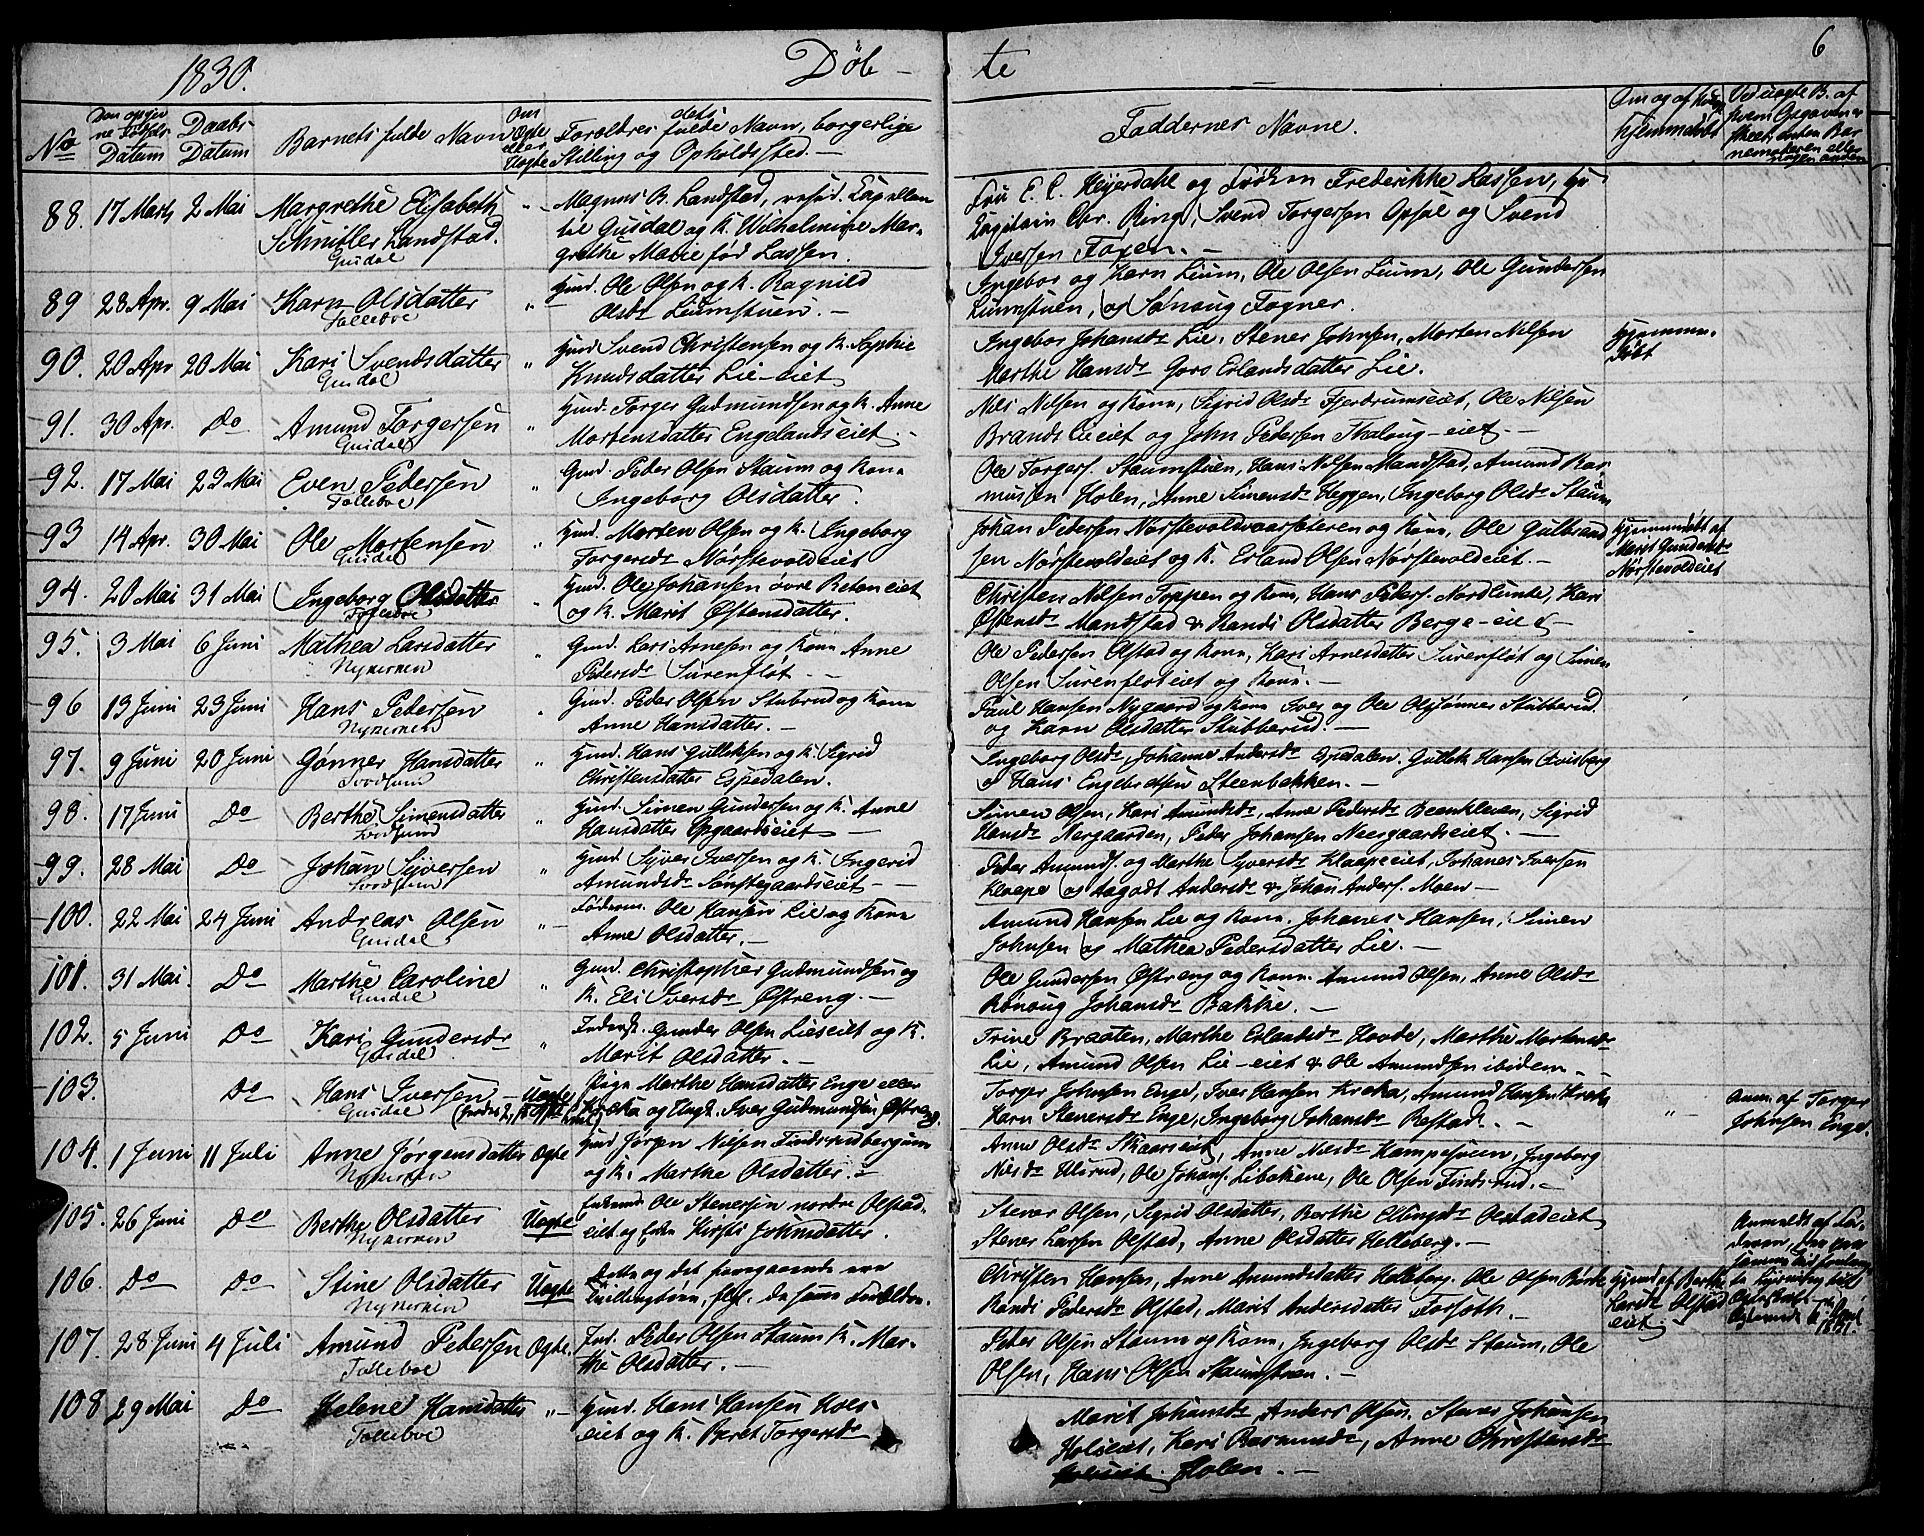 1830. Döb- te 6
No
Den opgivne Fødsels Datum
Daabs Datum
Barnets fulde Navn
Om Ægte eller Uægte
Forældres fulde Navn, borgerlige
Stilling og Opholdssted. -
Faddernes Navne.
Om og af hvem hjemmedøbt
Ved uægte B. af
hvem Opgaven er
skeet, enten Bar-
nemoderen eller
nogen anden
88. 17 Marts 2 Mai Margrethe Elisabeth
Schnitler Landstad.
Gusdal
Magnus B. Landstad, resid. Capellan
til Gusdal og K. Wilhelmine Mar-
grethe Marie fød Lassen.
Fru E. C. Heyerdahl og Frøken Frederikke Lassen,
Capitain Chr. Ring, Svend Torgersen Opsal og Svend
Iversen Foxen. -
89 28 Apr. 9 Mai Karn Olsdatter
Folleboe
Gmd. Ole Olsen og K. Ragnild
Olsdr Liumstuen. -
Ingebor og Karn Lium, Ole Olsen Lium, Ole Gundersen
Liumstuen, og Rønoug Fogner.
90. 20 Apr 20 Mai Kari Svendsdatter
Gusdal
Hmd Svend Christensen og K. Sophie
Knudsdatter Lie-eiet
Ingebor Johansdr Lie, Stener Johnsen, Morten Nilsen
Marthe Hansdr Goro Erlandsdatter Lie.
Hjemme-
døbt
91. 30 Apr. Do Amund Torgersen
Gusdal
Hmd. Torger Gudmundsen og K. Anne
Mortensdatter Engelandseiet. -
Nils Nilsen og Kone, Sigrid Olsdr Fjerdrumseiet, Ole Nilsen
Brandslieeiet og John Pedersen Thaloug-eiet. -
92. 17 Mai 23 Mai Even Pedersen
Folleboe
Gmd. Peder Olsen Staum og Kone
Ingeborg Olsdatter.
Ole Torgers. Staumstuen, Hans Nilsen Mandstad, Amund Ras-
musen Holen, Anne Simensdr Heggen, Ingeborg Olsdr Staum
93 14 Apr. 30 Mai Ole Mortensen
Gusdal
Hmd. Morten Olsen og K. Ingeborg
Torgersdr Nørstevoldeiet
Johan Pedersen Nørstevoldvaarsæteren og Kone, Ole Gulbrand
sen Nørstevoldeiet og K. Erland Olsen Nørstevoldeiet. -
Hjemmedøbt af
Marit Gundersdr
Nørstevoldeiet
94. 20 Mai 31 Mai Ingeborg Olsdatter
Folleboe
Hmd. Ole Johansen øvre Bøtoneiet
og K. Marit Østensdatter.
Christen Nilsen Toppen og Kone, Hans Peders. Nordlunde, Kari
Østensdr Mandstad & Randi Olsdatter Berge-eiet -
95. 3 Mai 6 Juni Mathea Larsdatter
Nykirken
Gmd. Lars Arnesen og Kone Anne
Pedersdr Surenflot. -
Ole Pedersen Olstad og Kone, Kari Arnesdatter Surenflot og Simen
Olsen Surenfloteiet og Kone. -
96 13 Juni 23 Juni Hans Pedersen
Nykirken
Gmd. Peder Olsen Stubrud og Kone
Anne Hansdatter. -
Paul Hansen Nygaard og Kone Iver og Ole Olssønner Stubberud
og Karn Olsdatter Stubberud. -
97. 9 Juni 20 Juni Gønner Hansdatter
Svodsum
Hmd. Hans Gulleksen og K. Sigrid
Christensdatter Espedalen.
Ingeborg Olsdr Johanne Andersdr Espedalen, Gullek Hansen Qvisberg
& Hans Engebretsen Steenbakken. -
98. 17 Juni Do Berthe Simensdatter
Svodsum
Hmd. Simen Gundersen og K. Anne
Hansdatter Opgaardseiet -
Simen Olsen, Kari Amundsdr, Anne Pedersdr Beenkleven, Sigrid
Hansdr Nergaarden, Peder Johansen Neergaardseiet. -
99. 28 Mai Do Johan Syversen
Svodsum
Hmd. Syver Iversen og K. Ingerid
Amundsdr Sønstegaardseiet -
Peder Amunds. og Marthe Syversdr Klaapeeiet, Johanes Iversen
Klaape og Aagodt Andersdr & Johan Anders. Moen -
100. 22 Mai 24 Juni Andreas Olsen
Gusdal
Ole Hansen Lie og Kone
Anne Olsdatter. -
Amund Hansen Lie og Kone. Johanes Hansen, Simen
Johnsen og Mathea Pedersdatter Lie. -
101. 31 Mai. Do Marthe Caroline
Gusdal
Gmd. Christopher Gudmundsen og
K. Eli Iversdr Østreng. -
Ole Gundersen Østreng og Kone. Amund Olsen, Anne Olsdr
Rønoug Johansdr Bakke. -
102. 5 Juni Do Kari Gundersdr
Gusdal
Inderst. Gunder Olsen Lieseiet og K.
Marit Olsdatter. -
Trine Braaten, Marthe Erlandsdr Hovde, Marthe Mortensdr
Lie, Amund Olsen Lie-eiet & Ole Amundsen ibidem. -
103. Do Hans Iversen
Gusdal
Uægte
Pige Marthe Hansdatter Enge eller
Kræka og Ungk. Iver Gudmundsen Østreng.
Torger Johnsen Enge, Iver Hansen Kreka, Amund Hansen Kreke
Karn Stenersdr Enge, Ingeborg Johansdr Rostad. -
Anm. af Torger
Johnsen Enge.
104. 1 Juni 11 Juli Anne Jørgensdatter Ægte
Nykirken
Gmd Jørgen Nilsen Findsrudbergum
og K. Marthe Olsdatter. -
Anne Olsdr Skaarseiet, Anne Nilsdr Kampesveen, Ingeborg
Nilsdr Ulsrud, Ole Johans. Libakkene, Ole Olsen Findsrud. -
105. 26 Juni Do Berthe Olsdatter Uægte
Nykirken
Enkemd. Ole Stenersen nordre Olstad-
eiet og Enke Kirsti Johnsdatter.
Stener Olsen, Sigrid Olsdatter, Berthe Ellingsdr Olstadeiet
Stener Larsen Olstad, Anne Olsdatter Helleberg. -
106. Do Do Stine Olsdatter Uægte
Nykirken
Dette og det foregaaende ere
Tvillingbørn, flgl. de samme Forældre.
Christen Hansen, Anne Amundsdatter Helleberg. Ole Olsen Børke
Randi Pedersdr Olstad, Marit Andersdatter Forsoth. -
Hjemd af Berthe
Larsdr Olstad
eiet
Anmeldt af Fa-
deren,
107. 28 Juni 4 Juli Amund Pedersen Ægte.
Folleboe
Peder Olsen Staum K. Mar-
the Olsdatter. -
Peder Olsen Staum og Kone, Ingeborg Olsdr Staum, Ole
Olsen, Hans Olsen Staumstuen. -
108 29 Mai Do Helene Hansdatter
Folleboe
Hmd. Hans Hansen Hols-
eiet og K. Beret Torgersdr
Marit Johansdr, Anders Olsen. Stener Johansen
Holseiet, Kari Rasmusdr, Anne Christiansdr
Holen. -